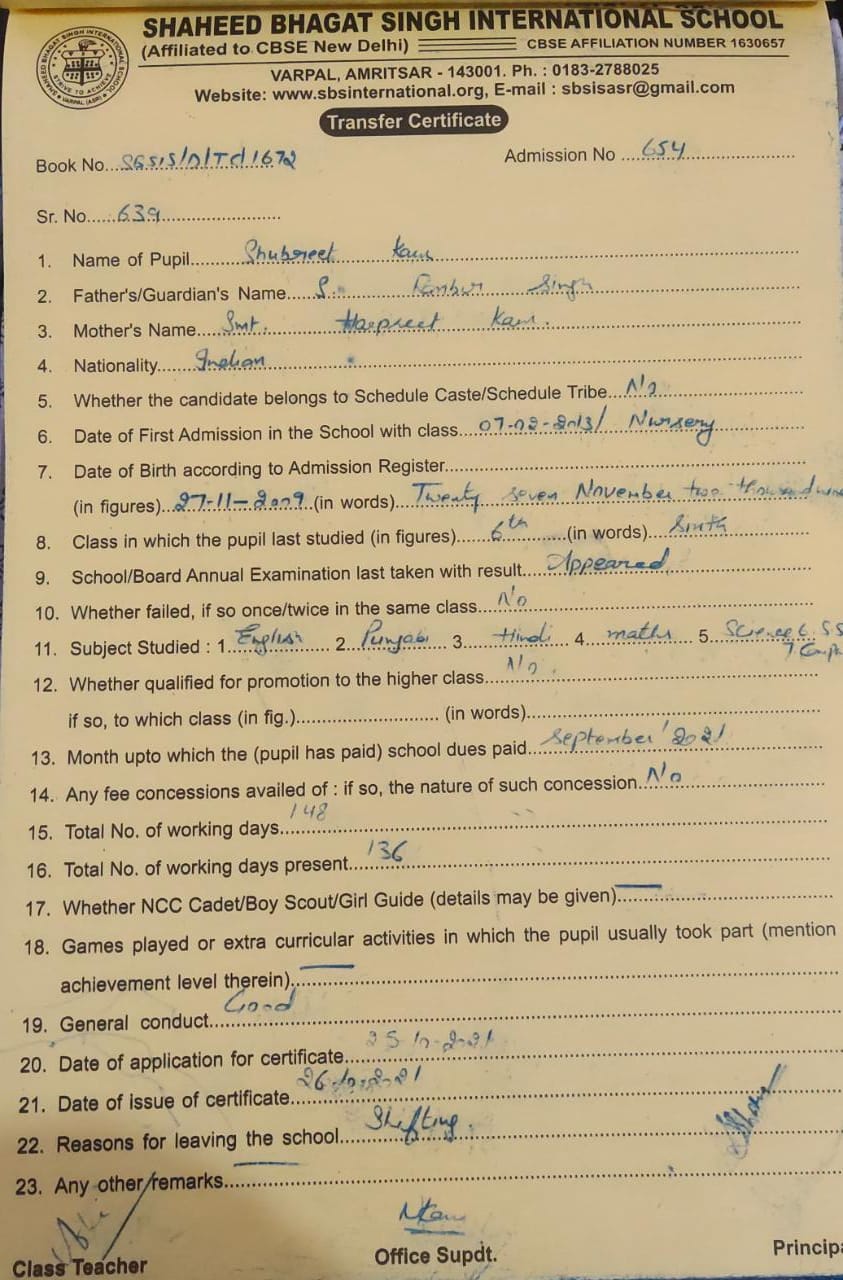 SHAHEED BHAGAT SINGH INTERNATIONAL SCHOOL
(Affiliated to CBSE New Delhi) CBSE AFFILIATION NUMBER 1630657
VARPAL, AMRITSAR - 143001. Ph. : 0183-2788025
Website: www.sbsinternational.org, E-mail : sbsisasr@gmail.com
SHAHEED BHAGAT SINGH INTERNATIONAL SCHOOL
STRIVE TO ACHIEVE
VARPAL (ASR)
Transfer Certificate
Book No. Admission No 654
Sr. No. 639
1. Name of Pupil Shubreet Kaur
2. Father's/Guardian's Name S. Singh
3. Mother's Name Smt. Harpreet Kaur.
4. Nationality Indian
5. Whether the candidate belongs to Schedule Caste/Schedule Tribe No
6. Date of First Admission in the School with class 07-02-2013/ Nursery
7. Date of Birth according to Admission Register
(in figures) 27-11-2009 (in words) Twenty seven November two thousand nine
8. Class in which the pupil last studied (in figures) 6th (in words) Sixth
9. School/Board Annual Examination last taken with result Appeared
10. Whether failed, if so once/twice in the same class No
11. Subject Studied : 1 English 2 Punjabi 3 Hindi 4 maths 5. Science 6. SS
7 Comp
12. Whether qualified for promotion to the higher class No
if so, to which class (in fig.) (in words)
13. Month upto which the (pupil has paid) school dues paid September' 2021
14. Any fee concessions availed of : if so, the nature of such concession No
15. Total No. of working days 148
16. Total No. of working days present 136
17. Whether NCC Cadet/Boy Scout/Girl Guide (details may be given)
18. Games played or extra curricular activities in which the pupil usually took part (mention
achievement level therein)
19. General conduct Good
20. Date of application for certificate 25-10-2021
21. Date of issue of certificate 26-10-2021
22. Reasons for leaving the school Shifting.
23. Any other remarks
Class Teacher Office Supdt. Principa